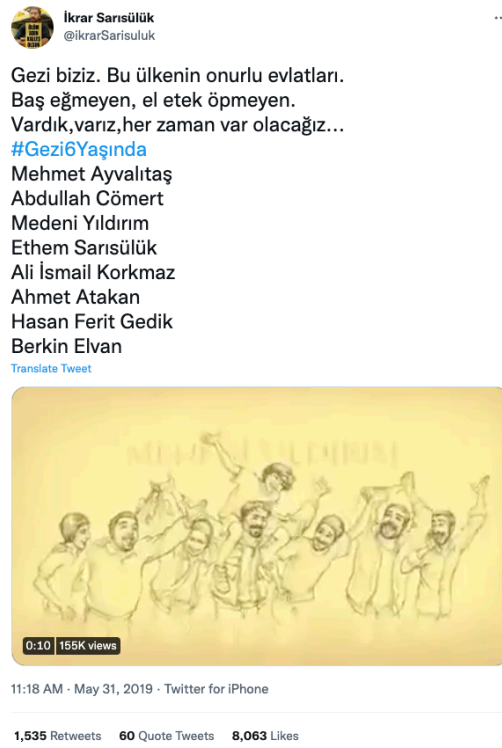 İkrar Sarısülük
@ikrarSarisuluk
Gezi biziz. Bu ülkenin onurlu evlatları.
Baş eğmeyen, el etek öpmeyen.
Vardık,varız,her zaman var olacağız...
#Gezi6Yaşında
Mehmet Ayvalıtaş
Abdullah Cömert
Medeni Yıldırım
Ethem Sarısülük
Ali İsmail Korkmaz
Ahmet Atakan
Hasan Ferit Gedik
Berkin Elvan
Translate Tweet
MEDENİ YILDIRIM
0:10 155K views
11:18 AM · May 31, 2019 · Twitter for iPhone
1,535 Retweets 60 Quote Tweets 8,063 Likes